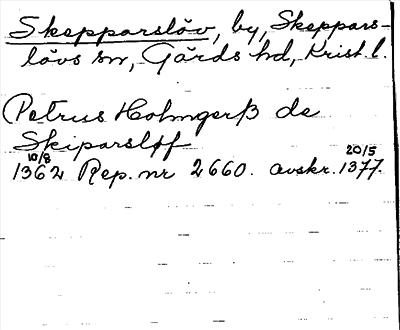 Skepparslöv, by, Skeppars-
lövs sn, Gärds hd, Krist. l.
Petrus Holmgerß de
Skiparsløf
10/8 20/5
1362 Rep. nr 2660. avskr. 1377.